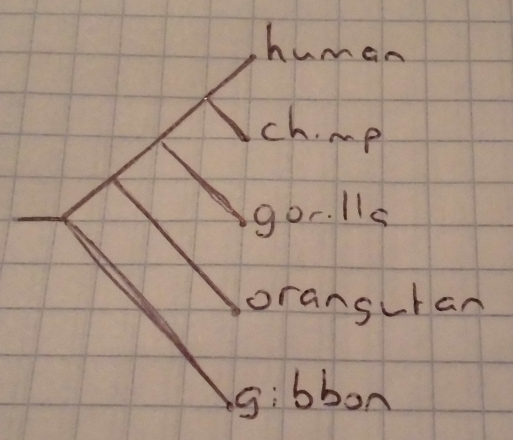 human
chimp
gorilla
orangutan
gibbon